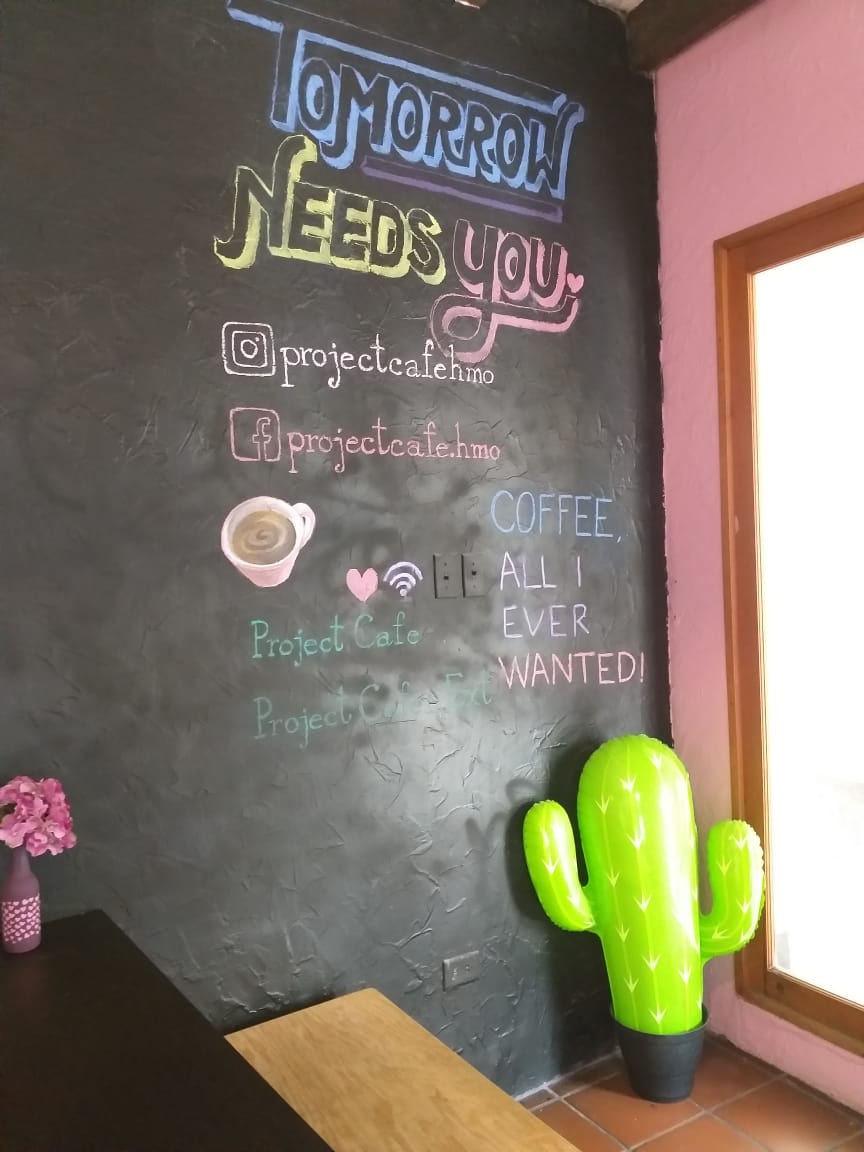 TOMORROW
NEEDS YOU
projectcafehmo
projectcafe.hmo
COFFEE,
ALL I
EVER
WANTED!
Project Cafe
Project Cafe_Ext